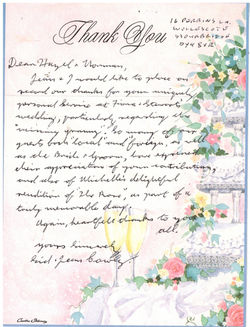 Thank You
Dear Hazel & Norman,
Jean & I would like to place on
record our thanks for your uniquely
personal service at
wedding, particularly regarding the
"missing groom"! So many of our
guests both local and foreign, as well
as the Bride & Groom, have expressed
their appreciation of your contribution,
and also of Michelle's delightful
rendition of The Rose, as part of a
truly memorable day.
Again, heartfelt thanks to you
all.
Yours sincerely
& Jean